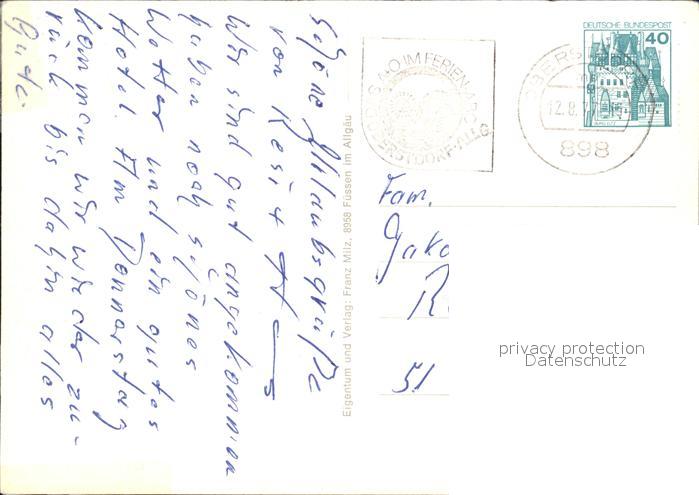 Schöne Urlaubsgrüße
von Resi +
Wir sind gut angekommen
haben noch schönes
Wetter und ein gutes
Hotel. Am Donnerstag
kommen wir wieder zu-
rück bis dahin alles
Gute.
Eigentum und Verlag: Franz Milz, 8958 Füssen im Allgäu
IM FERIEN
OBERSTDORF-ALLG.
OBERS
12.8.
898
DEUTSCHE BUNDESPOST
40
BURG ELTZ
Fam.
Jako
R
51
privacy protection
Datenschutz